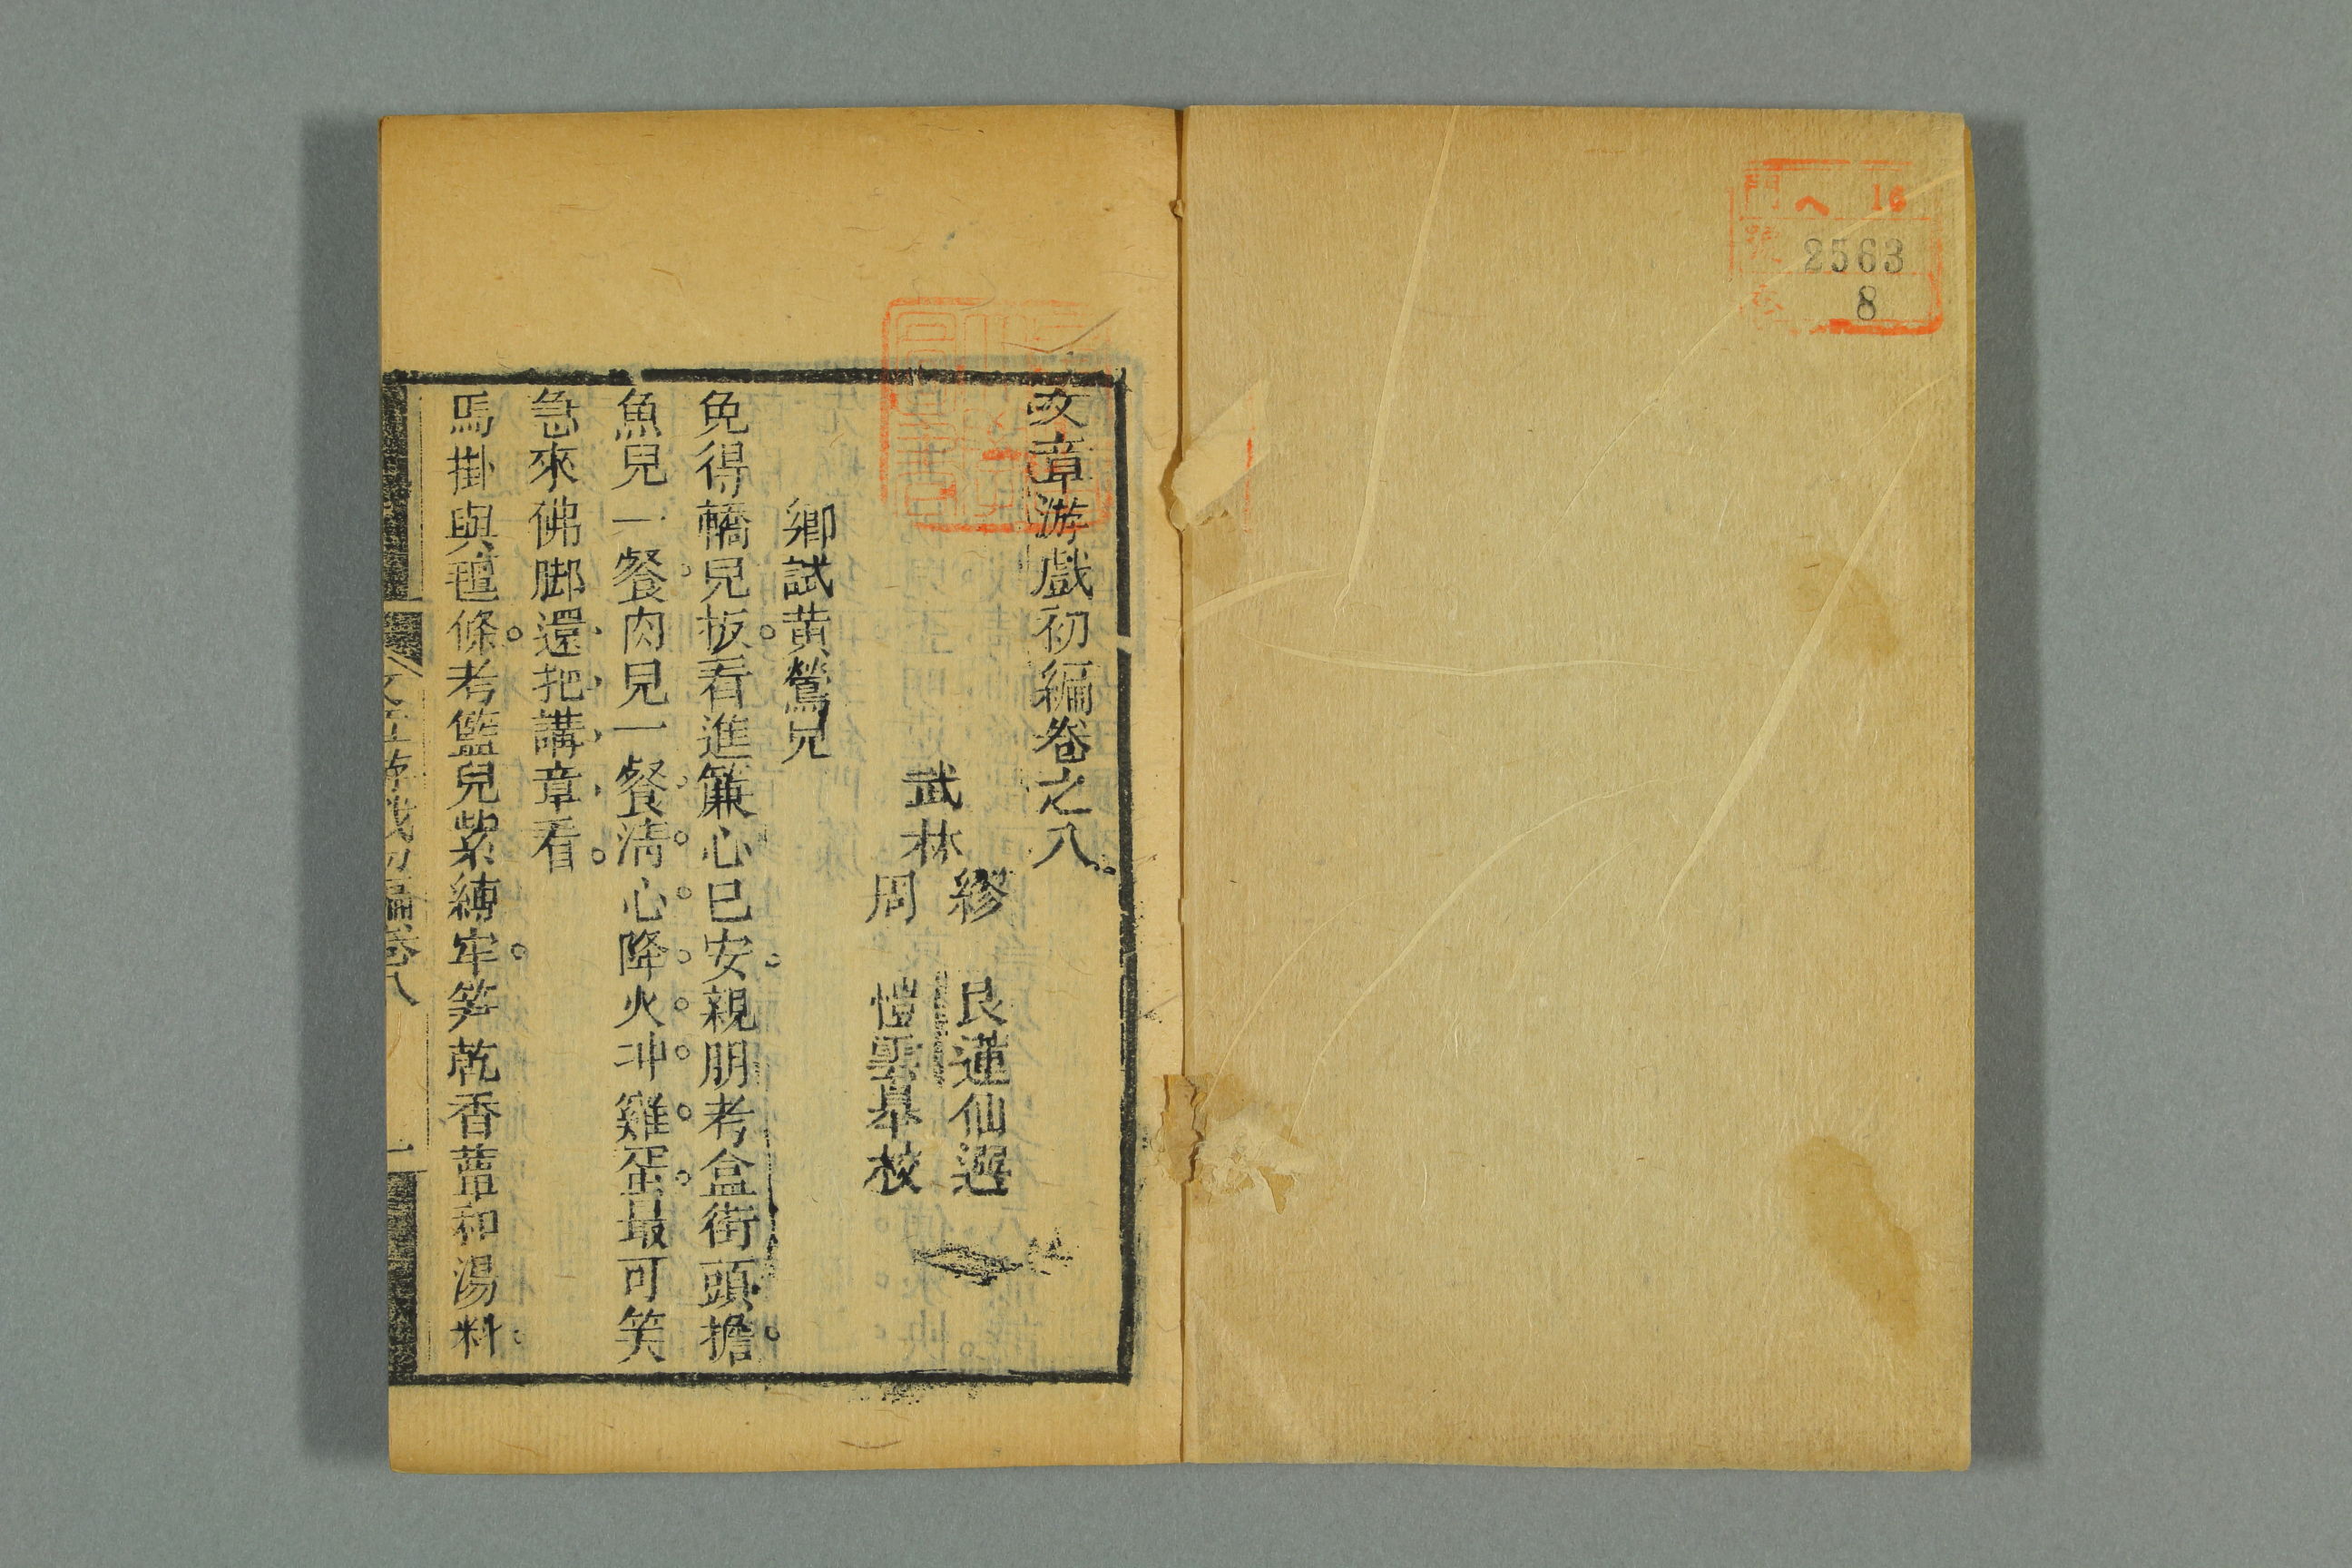 門 ヘ 16
號 2563
8
文章游戲初編卷之八
武林
繆 艮蓮仙選
周 愷雲皐校
鄉試黃鶯兒
免得轎兒扳。看進簾心已安。親朋考盒街頭擔。
魚兒一餐。肉兒一餐。淸心降火冲雞蛋。最可笑
急來佛脚還把講章看。
馬掛與氊條。考籃兒紮縛牢。笋乾香蕈和湯料。
文章游戲初編 卷八 一